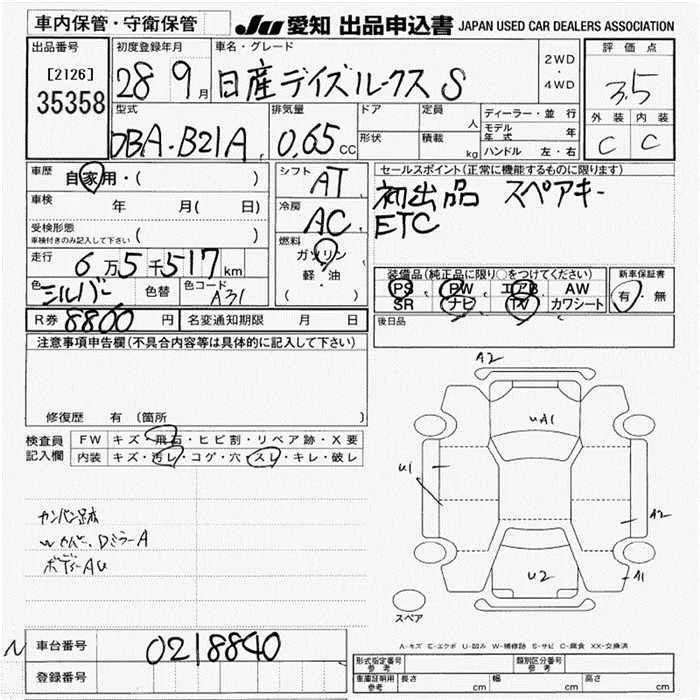 車内保管・守衛保管 JU 愛知 出品申込書 JAPAN USED CAR DEALERS ASSOCIATION
出品番号 初度登録年月 車名・グレード 2WD ・ 4WD 評価点
[2126] 28 9月 日産デイズルークス S 3.5
35358
型式 排気量 ドア 定員 人 ディーラー・並行 外装 内装
DBA-B21A 0.65 CC 形状 積載 kg モデル年式 年 C C
ハンドル 左・右
車歴 自家用・( ) シフト AT セールスポイント(正常に機能するものに限ります)
車検 年 月( 日) 冷房 AC 初出品 スペアキー
受検形態 ( ) ETC
車検付きのみ記入して下さい
走行 6万5千517km 燃料 ガソリン
軽・油
( )
装備品(純正品に限り○をつけてください) 新車保証書
色 シルバー 色替 色コード A31 PS PW エアB AW 有・無
SR ナビ TV カワシート
R券 8800円 名変通知期限 月 日 後日品
注意事項申告欄(不具合内容等は具体的に記入して下さい)
修復歴 有 (箇所 )
検査員 FW キズ・飛石・ヒビ割・リペア跡・X要
記入欄 内装 キズ・汚レ・コゲ・穴・スレ・キレ・破レ
A2
UA1
U1
A2
U2
A1
カンバン跡
DミラーA
ボデーAU
スペア
A-キズ E-エクボ U-凹み W-補修跡 S-サビ C-腐食 XX-交換済
N 車台番号 0218840
登録番号
形式指定番号 参考 類別区分番号 参考
車庫証明用 参考 長さ cm 幅 cm 高さ cm